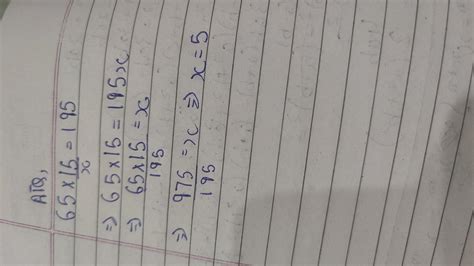 ATQ,
65 × 15/x = 195
⇒ 65 × 15 = 195x
⇒ 65 × 15/195 = x
⇒ 975/195 = x ⇒ x = 5